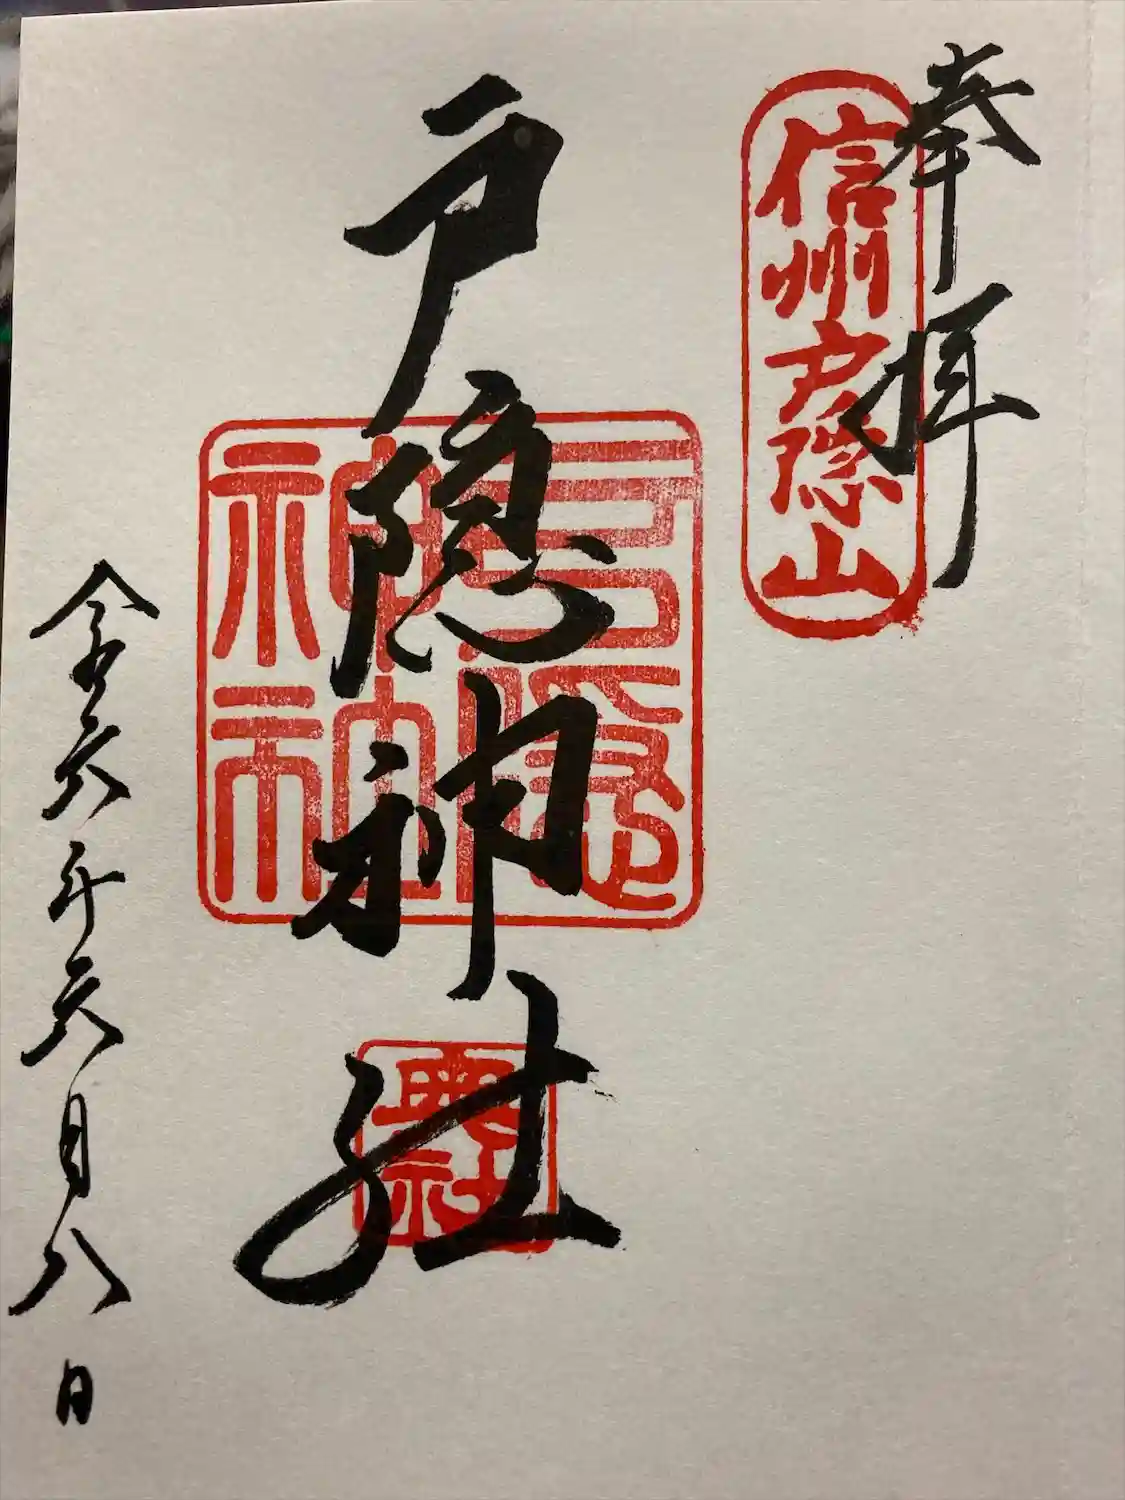 奉拝
信州戸隠山
戸隠神社
戸隠神社
令和六年六月八日